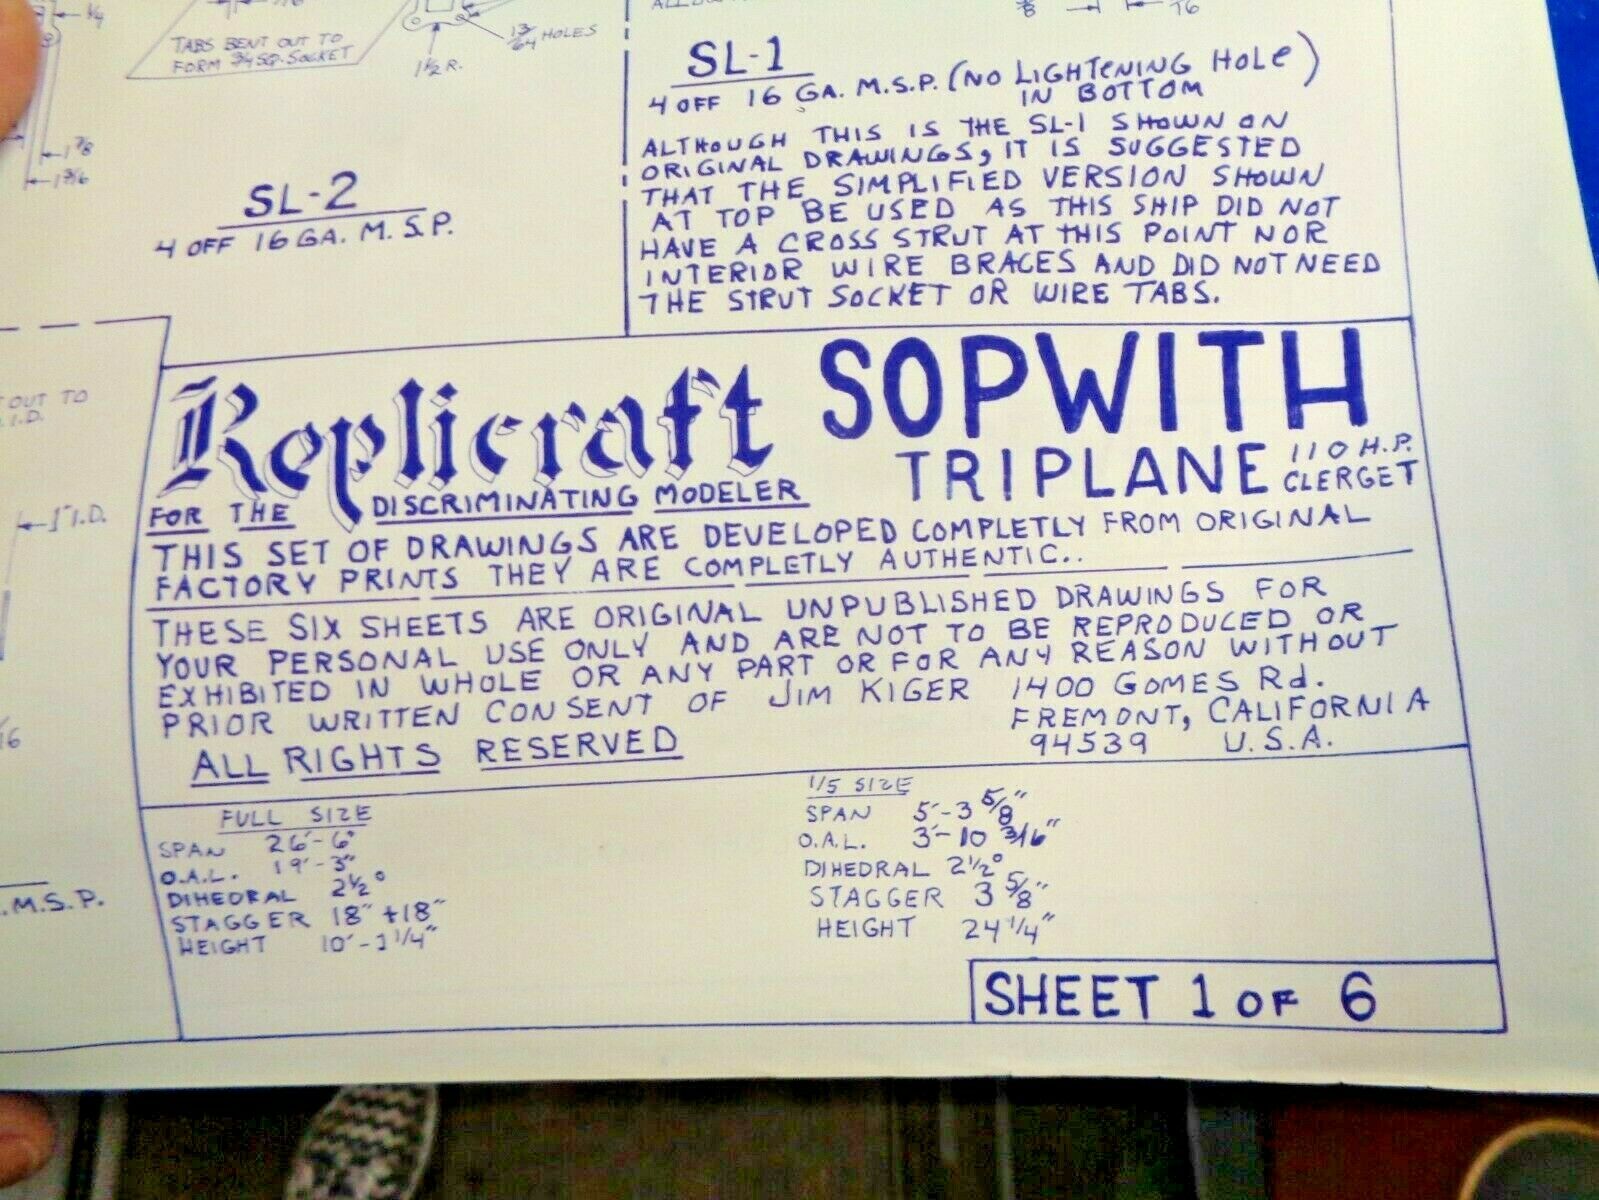 1/4
TABS BENT OUT TO
FORM 3/4 SQ. SOCKET
13/64 HOLES
1 1/2 R.
1 7/8
SL-2
4 OFF 16 GA. M.S.P.
SL-1
4 OFF 16 GA. M.S.P. (NO LIGHTENING HOLE)
IN BOTTOM
ALTHOUGH THIS IS THE SL-1 SHOWN ON
ORIGINAL DRAWINGS, IT IS SUGGESTED
THAT THE SIMPLIFIED VERSION SHOWN
AT TOP BE USED AS THIS SHIP DID NOT
HAVE A CROSS STRUT AT THIS POINT NOR
INTERIOR WIRE BRACES AND DID NOT NEED
THE STRUT SOCKET OR WIRE TABS.
OUT TO
I.D.
1" I.D.
.M.S.P.
Replicraft
FOR THE DISCRIMINATING MODELER
SOPWITH
TRIPLANE 110 H.P.
CLERGET
THIS SET OF DRAWINGS ARE DEVELOPED COMPLETLY FROM ORIGINAL
FACTORY PRINTS THEY ARE COMPLETLY AUTHENTIC..
THESE SIX SHEETS ARE ORIGINAL UNPUBLISHED DRAWINGS FOR
YOUR PERSONAL USE ONLY AND ARE NOT TO BE REPRODUCED OR
EXHIBITED IN WHOLE OR ANY PART OR FOR ANY REASON WITHOUT
PRIOR WRITTEN CONSENT OF JIM KIGER 1400 GOMES Rd.
FREMONT, CALIFORNIA
94539 U.S.A.
ALL RIGHTS RESERVED
FULL SIZE
SPAN 26'-6"
O.A.L. 19'-3"
DIHEDRAL 2 1/2°
STAGGER 18" + 18"
HEIGHT 10'-1 1/4"
1/5 SIZE
SPAN 5'-3 5/8"
O.A.L. 3'-10 3/16"
DIHEDRAL 2 1/2°
STAGGER 3 5/8"
HEIGHT 24 1/4"
SHEET 1 OF 6